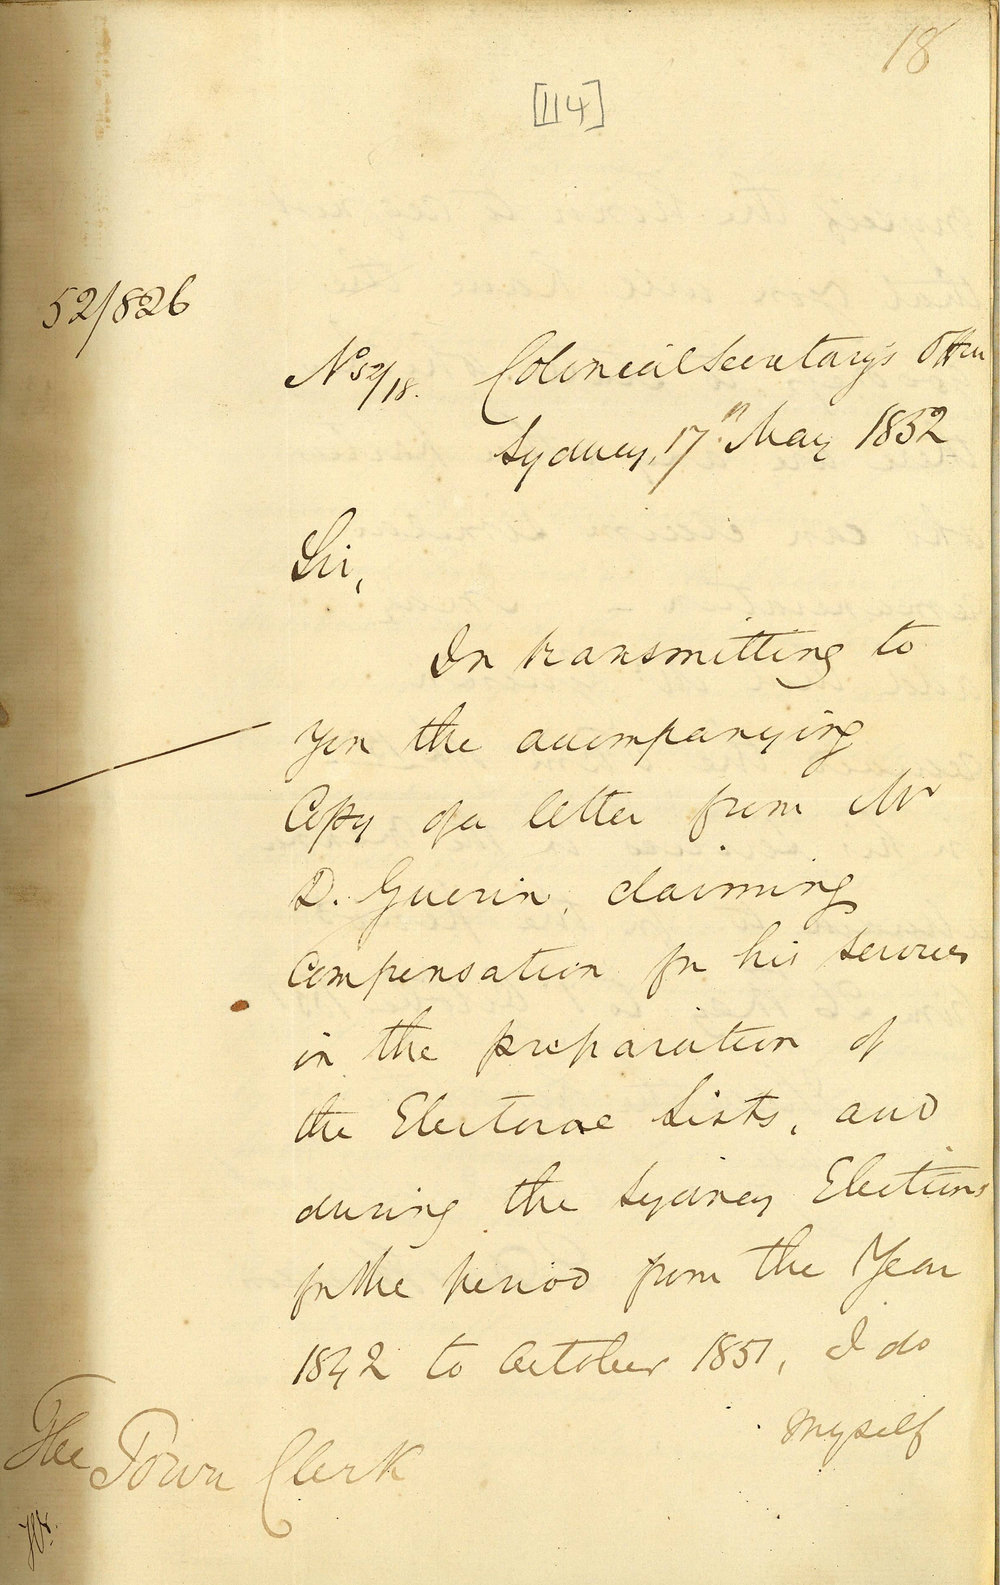 18
[114]
52/826
No 52/18. Colonial Secretary's Office
Sydney, 17th May 1852
Sir,
In transmitting to
you the accompanying
Copy of a letter from Mr
D. Guerin, claiming
Compensation for his services
in the preparation of
the Electoral Lists, and
during the Sydney Elections
for the period from the Year
1842 to October 1851, I do
myself
The Town Clerk